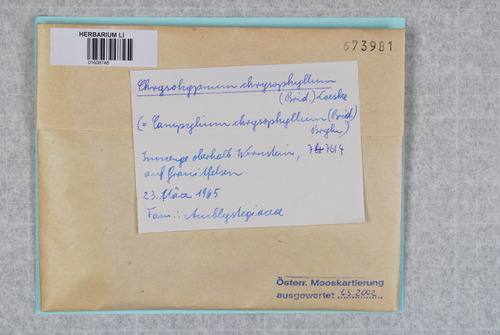 HERBARIUM LI
673981
Chrysohypnum chrysophyllum
(Brid.) Loeske
(= Campylium chrysophyllum (Brid.)
Bryhn)
Innenge oberhalb Wernstein, 7614
auf Granitfelsen
23. März 1965
Fam.: Amblystegiaceae
Österr. Mooskartierung
ausgewertet